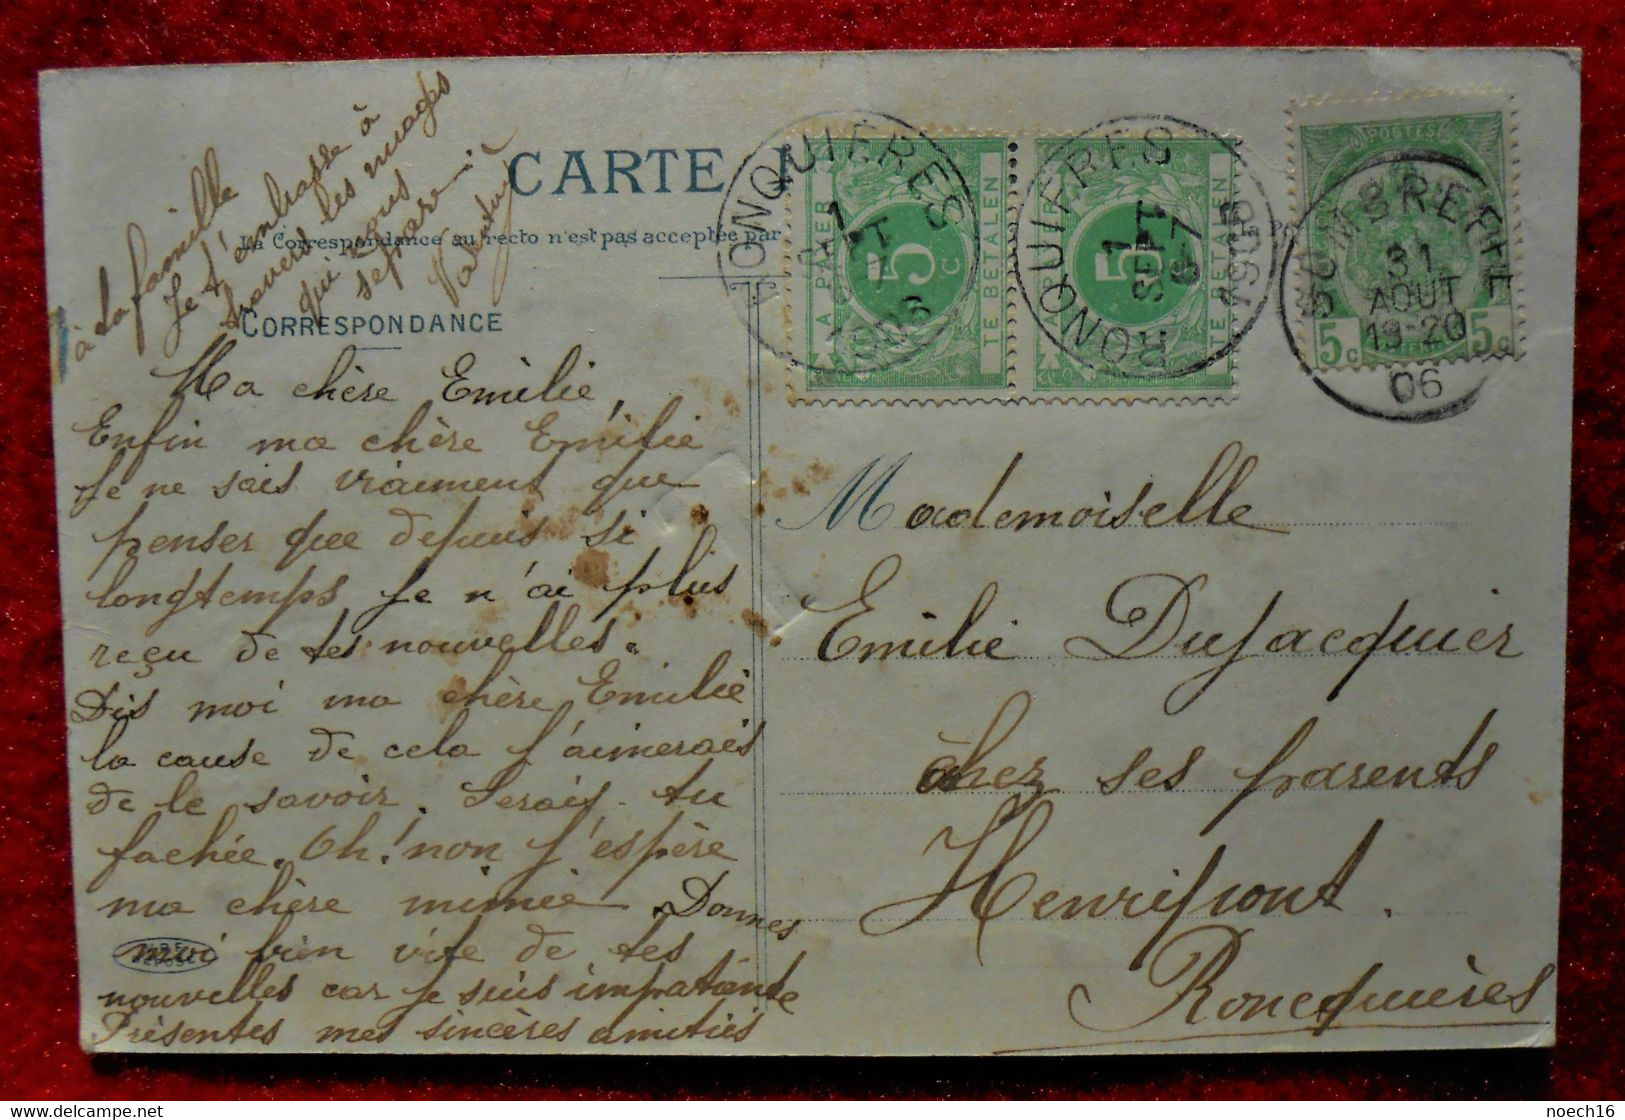 CARTE
La Correspondance au recto n'est pas acceptée par
CORRESPONDANCE
Ma chère Emilie,
Enfin ma chère Emilie
Je ne sais vraiment que
penser que depuis si
longtemps je n'ai plus
reçu de tes nouvelles.
Dis moi ma chère Emilie
la cause de cela j'aimerais
de le savoir. Serais-tu
fachée. Oh! non j'espère
ma chère mimie. Donnes
moi bien vite de tes
nouvelles car je suis impatiente
Présentes mes sincères amitiés
à ta famille
Je t'embrasse à
travers les nuages
qui nous
sépare
RONQUIERES
1
SEPT
6-7
1906
A PAYER
5
C
TE BETALEN
RONQUIERES
1
SEPT
6-7
1906
A PAYER
5
TE BETALEN
POSTES
5c 5c
SOMBREFFE
31
AOUT
19-20
06
Mademoiselle
Emilie Dujacquier
chez ses parents
Henripont.
Roncquières
noech16